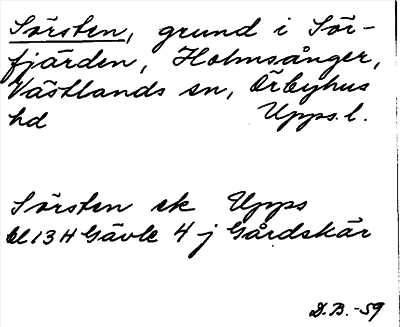 Sörsten, grund i Sör-
fjärden, Holmsånger,
Västlands sn, Örbyhus
hd Upps. l.
Sörsten ek Upps
bl 13 H Gävle 4 j Gårdskär
D.B. -59